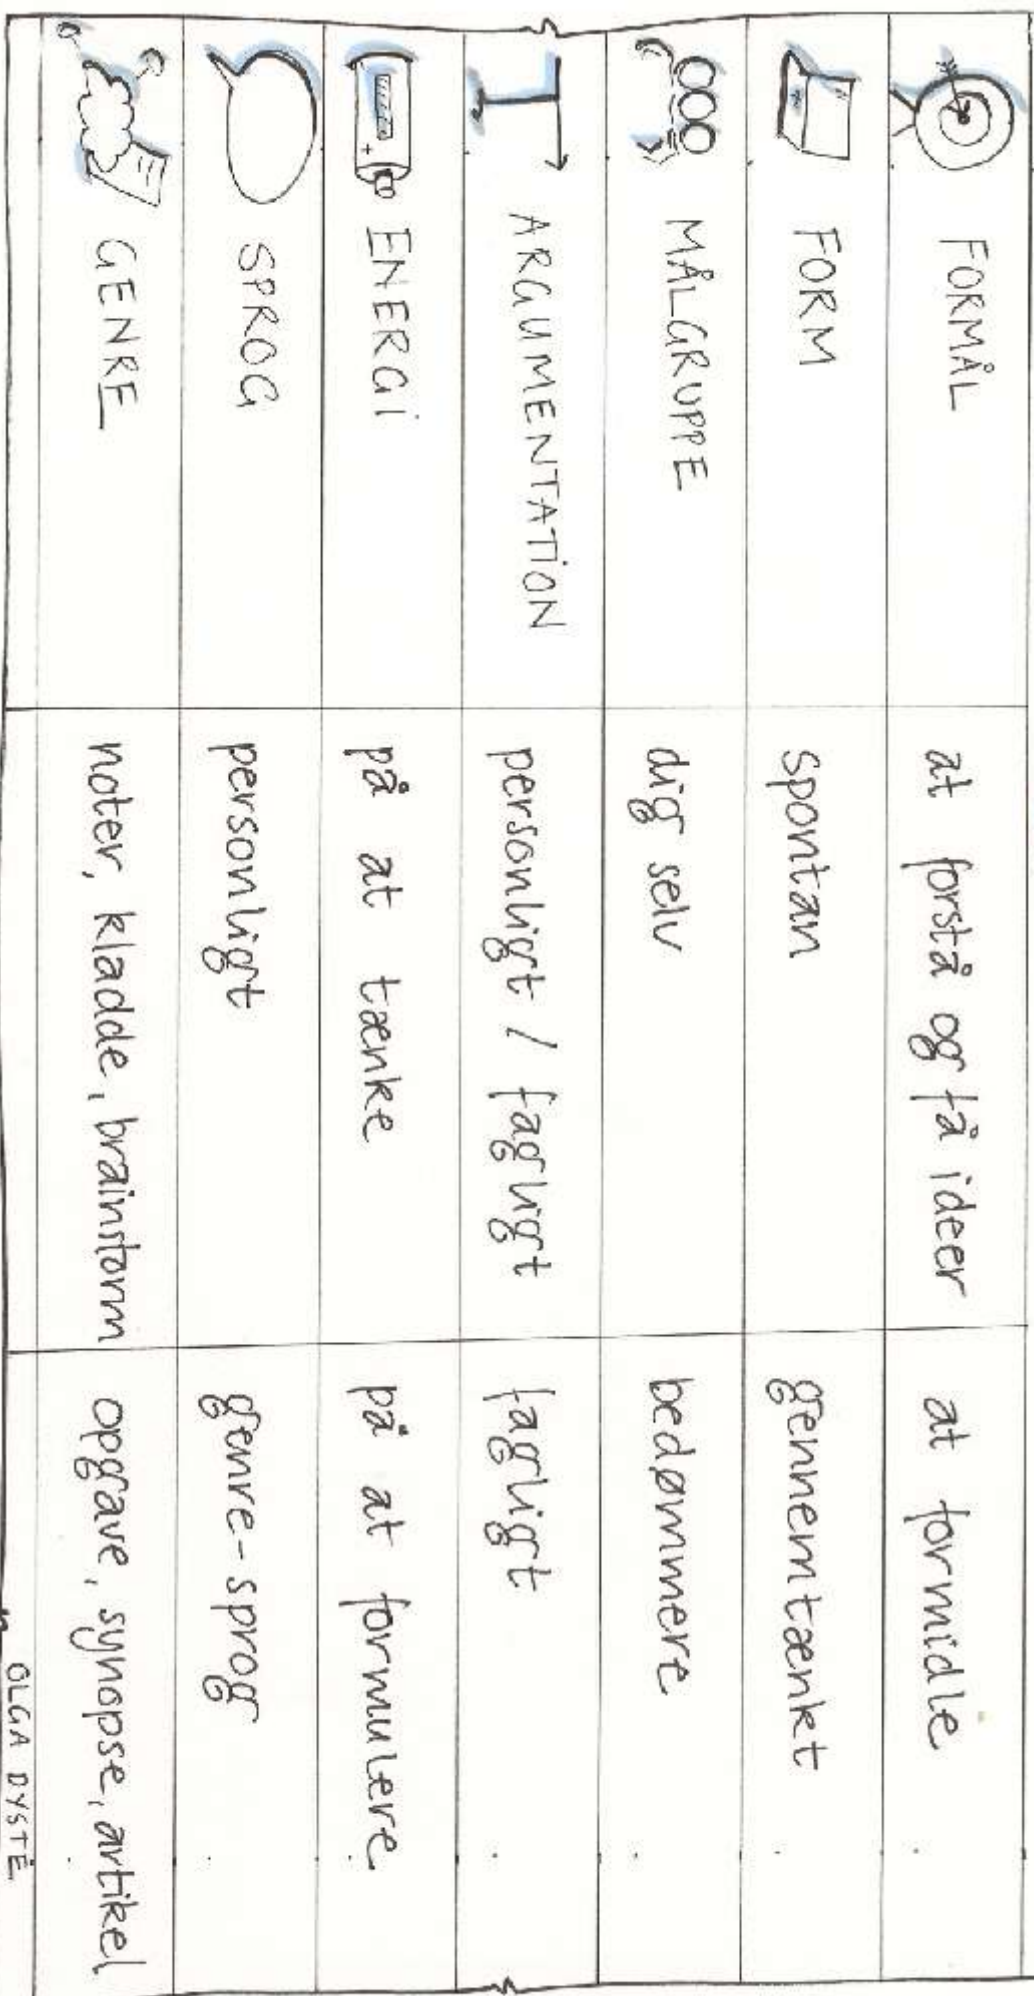 FORMÅL at forstå og få ideer at formidle
FORM spontan gennemtænkt
MÅLGRUPPE dig selv bedømmere
ARGUMENTATION personligt / fagligt fagligt
ENERGI på at tænke på at formulere
SPROG personligt genre-sprog
GENRE noter, kladde, brainstorm opgave, synopse, artikel
OLGA DYSTE